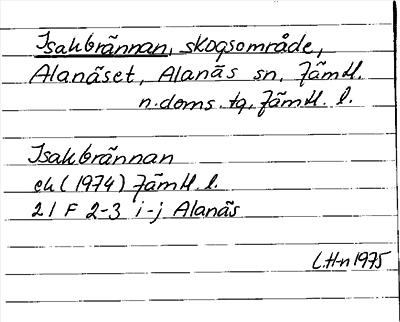 Isakbrännan, skogsområde,
Alanäset, Alanäs sn. Jämtl.
n.doms. tg, Jämtl. l.
Isakbrännan
ek (1974) Jämtl. l.
21 F 2-3 i-j Alanäs
L.H-n 1975